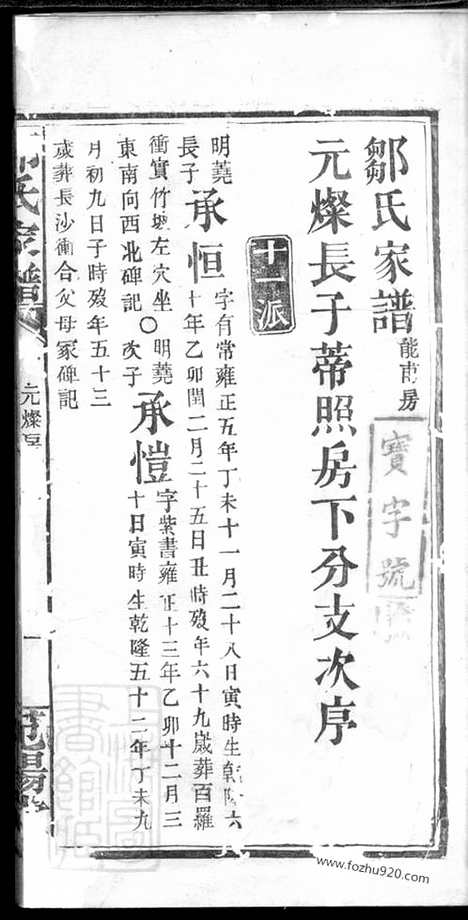 鄒氏家譜 能甫房
寶字號
元燦長子蒂照房下分支次序
十一派
明蕘長子承恒字有常雍正五年丁未十一月二十八日寅時生乾隆六
十年乙卯閏二月二十五日丑時殁年六十九歲葬百羅
衝實竹塅左穴坐
東南向西北碑記〇明蕘次子承愷字紫書雍正十三年乙卯十二月三
十日寅時生乾隆五十二年丁未九
月初九日子時殁年五十三
歲葬長沙衝合父母冢碑記
氏家譜
元燦房
一
范陽堂
www.fozhu920.com